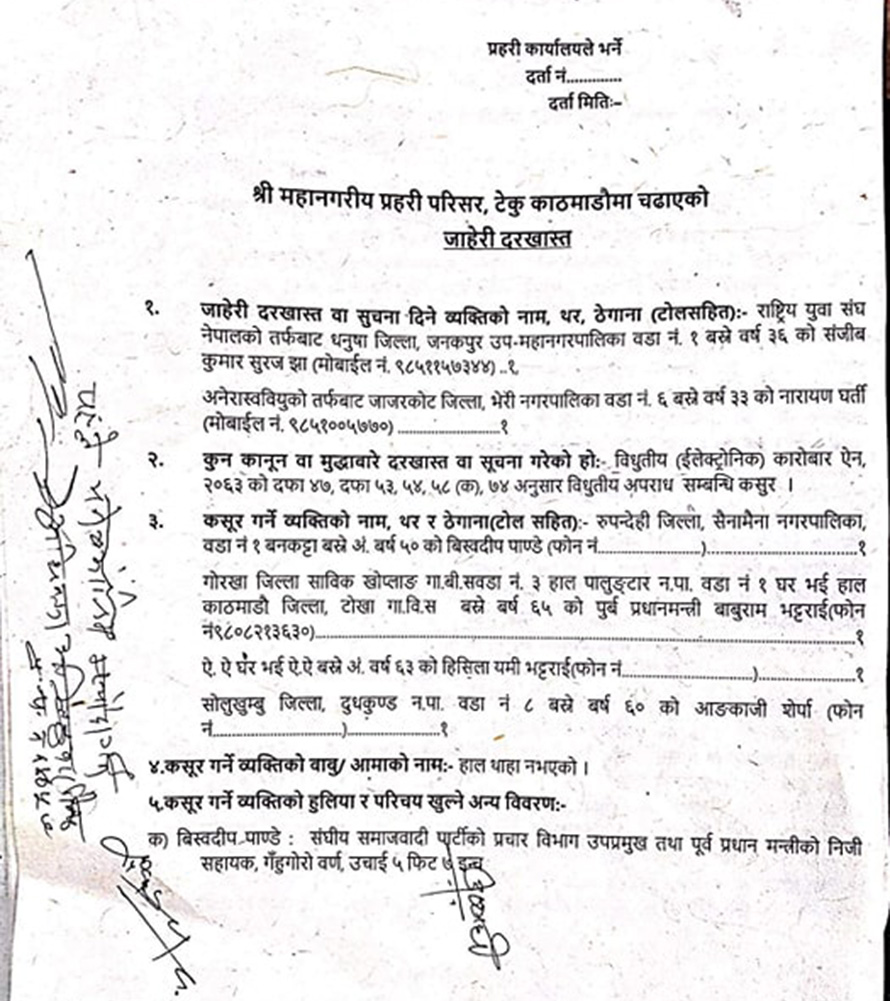 प्रहरी कार्यालयले भर्ने
दर्ता नं..............
दर्ता मितिः-
श्री महानगरीय प्रहरी परिसर, टेकु काठमाडौमा चढाएको
जाहेरी दरखास्त
१. जाहेरी दरखास्त वा सुचना दिने व्यक्तिको नाम, थर, ठेगाना (टोलसहित):- राष्ट्रिय युवा संघ
नेपालको तर्फबाट धनुषा जिल्ला, जनकपुर उप-महानगरपालिका वडा नं. १ बस्ने वर्ष ३६ को संजीब
कुमार सुरज झा (मोबाईल नं. ९८५११५७३४४) ..१
अनेरास्ववियुको तर्फबाट जाजरकोट जिल्ला, भेरी नगरपालिका वडा नं. ६ बस्ने वर्ष ३३ को नारायण घर्ती
(मोबाईल नं. ९८५१००५७७०) ......................१
२. कुन कानून वा मुद्धाबारे दरखास्त वा सूचना गरेको हो:- विधुतीय (ईलेक्ट्रोनिक) कारोबार ऐन,
२०६३ को दफा ४७, दफा ५३, ५४, ५८ (क), ७४ अनुसार विधुतीय अपराध सम्बन्धि कसुर ।
३. कसूर गर्ने व्यक्तिको नाम, थर र ठेगाना(टोल सहित):- रुपन्देही जिल्ला, सैनामैना नगरपालिका,
वडा नं १ बनकट्टा बस्ने अं. बर्ष ५० को बिस्वदीप पाण्डे (फोन नं......................)..............................१
गोरखा जिल्ला साविक खोप्लाङ गा.बी.सवडा नं. ३ हाल पालुङटार न.पा. वडा नं १ घर भई हाल
काठमाडौ जिल्ला, टोखा गा.वि.स बस्ने बर्ष ६५ को पुर्ब प्रधानमन्त्री बाबुराम भट्टराई(फोन
नं९८०८२१३६३०)..............................................................................................................१
ऐ. ऐ घर भई ऐ.ऐ बस्ने अं. वर्ष ६३ को हिसिला यमी भट्टराई(फोन नं..........................)....................१
सोलुखुम्बु जिल्ला, दुधकुण्ड न.पा. वडा नं ८ बस्ने बर्ष ६० को आङकाजी शेर्पा (फोन
नं..........................)..................१
४.कसूर गर्ने व्यक्तिको बाबु/ आमाको नाम:- हाल थाहा नभएको ।
५.कसूर गर्ने व्यक्तिको हुलिया र परिचय खुल्ने अन्य विवरण:-
क) बिस्वदीप पाण्डे : संघीय समाजवादी पार्टीको प्रचार विभाग उपप्रमुख तथा पूर्व प्रधान मन्त्रीको निजी
सहायक, गहुँगोरो वर्ण, उचाई ५ फिट ७ इन्च